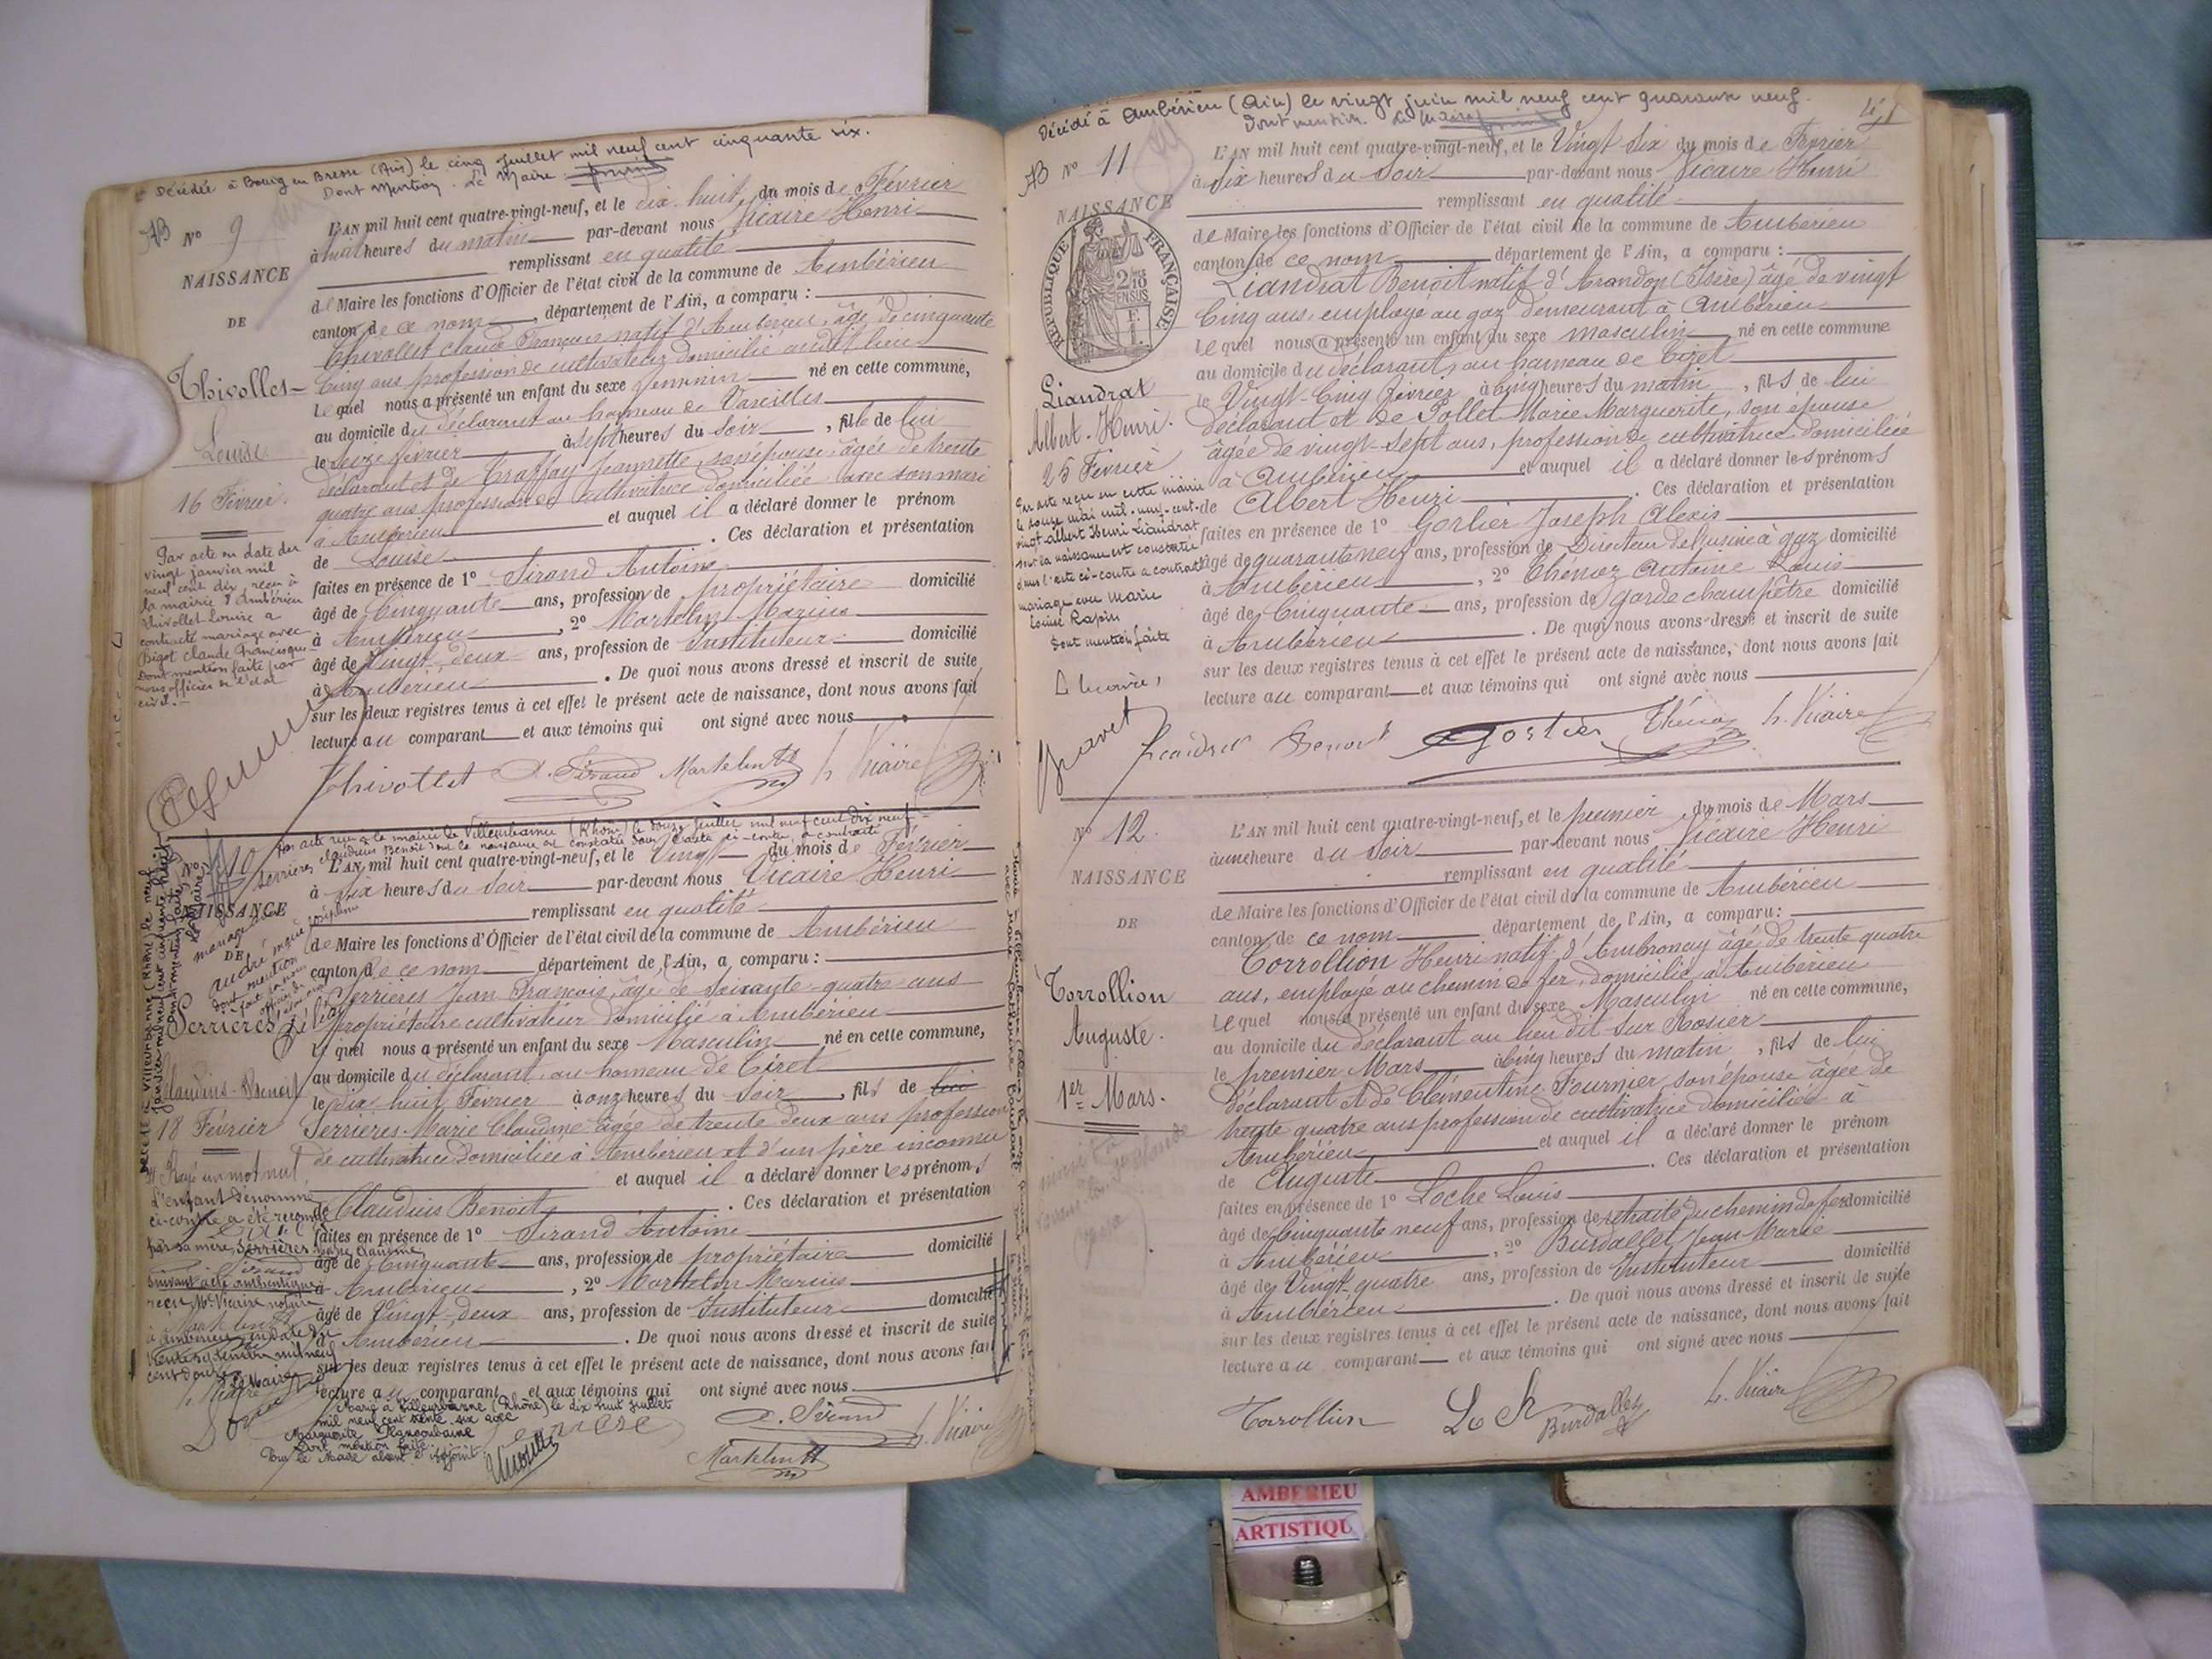 Décédée à Bourg en Bresse (Ain) le cinq juillet mil neuf cent cinquante six.
Dont Mention. Le Maire
N° 9
NAISSANCE
DE
Thivollet
Louise
16 Février.
Par acte en date du
vingt janvier mil
neuf cent dix, reçu à
la mairie d'Ambérieu
Thivollet Louise a
contracté mariage avec
Bigot Claude Francisque
Dont mention faite par
nous officier de l'état
civil.
L'AN mil huit cent quatre-vingt-neuf, et le dix huit du mois de Février
à huit heures du matin par-devant nous Vicaire Henri
remplissant en qualité
de Maire les fonctions d'Officier de l'état civil de la commune de Ambérieu
canton de ce nom, département de l'Ain, a comparu :
Thivollet Claude François natif d'Ambérieu, âgé de cinquante
cinq ans profession de cultivateur domicilié audit lieu
Lequel nous a présenté un enfant du sexe féminin né en cette commune,
au domicile du déclarant au hameau de Vareilles
le seize février à sept heures du soir, fille de lui
déclarant et de Jeannette, son épouse, âgée de trente
quatre ans profession de cultivatrice domiciliée avec son mari
à Ambérieu et auquel il a déclaré donner le prénom
de Louise. Ces déclaration et présentation
faites en présence de 1° Sirand Antoine
âgé de Cinquante ans, profession de propriétaire domicilié
à Ambérieu, 2° Martelin Marius
âgé de Vingt-deux ans, profession de Instituteur domicilié
à Ambérieu. De quoi nous avons dressé et inscrit de suite
sur les deux registres tenus à cet effet le présent acte de naissance, dont nous avons fait
lecture au comparant et aux témoins qui ont signé avec nous
Thivollet A. Sirand Martelin H. Vicaire
Par acte reçu à la mairie de Villeurbanne (Rhône) le douze juillet mil neuf cent dix neuf
Serrières Claudius Benoît dont la naissance est constatée dans l'acte ci-contre, a contracté
mariage
dont mention
N° 10
NAISSANCE
DE
Serrières
Claudius-Benoît
18 Février
Rayé un mot nul
L'enfant dénommé
ci-contre a été reconnu
par sa mère, Serrières Marie Claudine,
suivant acte authentique
reçu Me Vicaire notaire
à Ambérieu en date du
trente septembre mil neuf
cent douze
Le Maire
L'AN mil huit cent quatre-vingt-neuf, et le Vingt du mois de Février
à six heures du soir par-devant nous Vicaire Henri
remplissant en qualité
de Maire les fonctions d'Officier de l'état civil de la commune de Ambérieu
canton de ce nom département de l'Ain, a comparu :
Serrières Jean François, âgé de Soixante-quatre ans
propriétaire cultivateur domicilié à Ambérieu
Lequel nous a présenté un enfant du sexe Masculin né en cette commune,
au domicile du déclarant, au hameau de Tiret
le dix huit Février à onze heures du soir, fils de lui
Serrières Marie Claudine âgée de trente deux ans profession
de cultivatrice domiciliée à Ambérieu et d'un père inconnu
et auquel il a déclaré donner les prénoms
de Claudius Benoît. Ces déclaration et présentation
faites en présence de 1° Sirand Antoine
âgé de Cinquante ans, profession de propriétaire domicilié
à Ambérieu, 2° Martelin Marius
âgé de Vingt-deux ans, profession de Instituteur domicilié
à Ambérieu. De quoi nous avons dressé et inscrit de suite
sur les deux registres tenus à cet effet le présent acte de naissance, dont nous avons fait
lecture au comparant et aux témoins qui ont signé avec nous
Marié à Villeurbanne (Rhône) le dix huit juillet
mil neuf cent trente six avec
Marguerite
Dont mention faite.
Pour le Maire absent l'adjoint
A. Sirand H. Vicaire
Martelin
Décédé à Ambérieu (Ain) le vingt juin mil neuf cent quarante neuf.
Dont mention. Le Maire
N° 11
NAISSANCE
RÉPUBLIQUE FRANÇAISE
2/10
EN SUS
Liandrat
Albert-Henri.
25 Février
Par acte reçu en cette mairie
le douze mai mil-neuf-cent-
vingt Albert Henri Liandrat
dont la naissance est constatée
dans l'acte ci-contre a contracté
mariage avec Marie
Louise Rapin
Dont mention faite
Le maire,
L'AN mil huit cent quatre-vingt-neuf, et le Vingt six du mois de Février
à six heures du soir par-devant nous Vicaire Henri
remplissant en qualité
de Maire les fonctions d'Officier de l'état civil de la commune de Ambérieu
canton de ce nom département de l'Ain, a comparu :
Liandrat Benoit natif d'Arandon (Isère) âgé de vingt
cinq ans, employé au gaz demeurant à Ambérieu
Lequel nous a présenté un enfant du sexe masculin né en cette commune
au domicile du déclarant, au hameau de Tiret
le Vingt-cinq Février à cinq heures du matin, fils de lui
déclarant et de Pollet Marie Marguerite, son épouse
âgée de vingt-sept ans, profession de cultivatrice domiciliée
à Ambérieu et auquel il a déclaré donner les prénoms
de Albert Henri. Ces déclaration et présentation
faites en présence de 1° Gorlier Joseph Alexis
âgé de quarante neuf ans, profession de Directeur de l'usine à gaz domicilié
à Ambérieu, 2° Thénoz Antoine Louis
âgé de Cinquante ans, profession de garde champêtre domicilié
à Ambérieu. De quoi nous avons dressé et inscrit de suite
sur les deux registres tenus à cet effet le présent acte de naissance, dont nous avons fait
lecture au comparant et aux témoins qui ont signé avec nous
Liandrat Benoit Gorlier Thénoz H. Vicaire
N° 12.
NAISSANCE
DE
Corrollion
Auguste.
1er Mars.
L'AN mil huit cent quatre-vingt-neuf, et le premier du mois de Mars
à une heure du soir par-devant nous Vicaire Henri
remplissant en qualité
de Maire les fonctions d'Officier de l'état civil de la commune de Ambérieu
canton de ce nom département de l'Ain, a comparu :
Corrollion Henri natif d'Ambronay âgé de trente quatre
ans, employé au chemin de fer, domicilié à Ambérieu
Lequel nous a présenté un enfant du sexe Masculin né en cette commune,
au domicile du déclarant au lieu dit Sur Rosier
le premier Mars à cinq heures du matin, fils de lui
déclarant et de Clémentine Fournier, son épouse âgée de
trente quatre ans profession de cultivatrice domiciliée à
Ambérieu et auquel il a déclaré donner le prénom
de Auguste. Ces déclaration et présentation
faites en présence de 1° Loche Louis
âgé de Cinquante neuf ans, profession de retraité du chemin de fer domicilié
à Ambérieu, 2° Burdallet Jean Marie
âgé de Vingt-quatre ans, profession de Instituteur domicilié
à Ambérieu. De quoi nous avons dressé et inscrit de suite
sur les deux registres tenus à cet effet le présent acte de naissance, dont nous avons fait
lecture au comparant et aux témoins qui ont signé avec nous
Corrollion Loch Burdallet H. Vicaire
AMBERIEU
ARTISTIQU